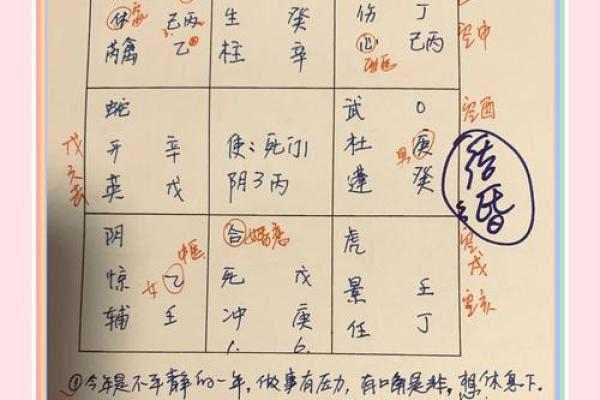 休 己丙 生 癸 伤 丁
芮禽 乙 柱 辛 心 己丙 空申
蛇 武 O 空酉
开 辛 使：死门 杜 男 庚
英 戊 阴3丙 蓬 癸
结婚
阴 中医 合 婚恋 虎
惊 女 乙 死 戊 景 壬 戌
辅 壬 冲 庚 任 丁 空亥
1. 6.
①今年是不平静的一年，做事有压力，有口角是非，想休息下